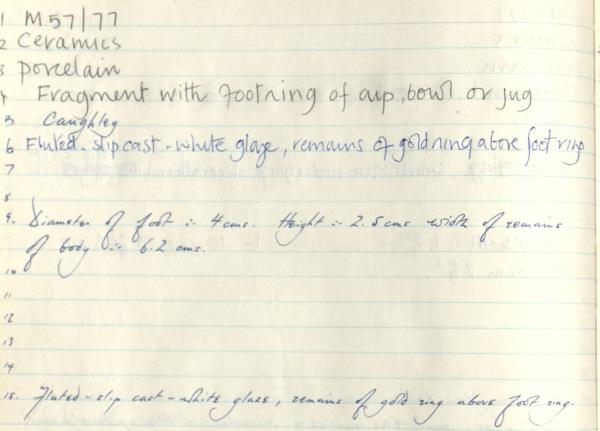 1 M57/77
2 Ceramics
3 porcelain
4 Fragment with footring of cup, bowl or jug
5 Caughley
6 Fluted - slip cast - white glaze, remains of gold ring above foot ring
7
8
9. Diameter of foot :- 4 cms. Height :- 2.5 cms width of remains
of body :- 6.2 cms.
10
11
12
13
14
15. Fluted - slip cast - white glaze, remains of gold ring above foot ring.